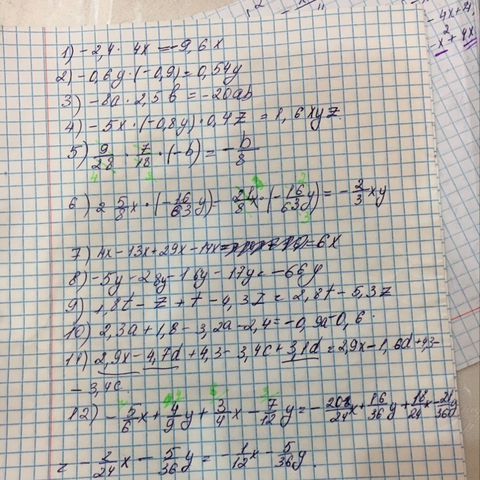 1) -2,4 · 4x = -9,6x
2) -0,6y · (-0,9) = 0,54y
3) -8a · 2,5b = -20ab
4) -5x · (-0,8y) · 0,4z = 1,6xyz
5) 9/28 · 7/18 · (-b) = -b/8
6) 2 5/8 x · (-16/63 y) = 21/8 x · (-16/63 y) = -2/3 xy
7) 4x - 13x + 29x - 14x = 6x
8) -5y - 28y - 16y - 17y = -66y
9) 1,8t - z + t - 4,3z = 2,8t - 5,3z
10) 2,3a + 1,8 - 3,2a - 2,4 = -0,9a - 0,6
11) 2,9x - 4,7d + 4,3 - 3,4c + 3,1d = 2,9x - 1,6d + 4,3 -
- 3,4c.
12) -5/6 x + 4/9 y + 3/4 x - 7/12 y = -20/24 x + 16/36 y + 18/24 x - 21/36 y
= -2/24 x - 5/36 y = -1/12 x - 5/36 y.